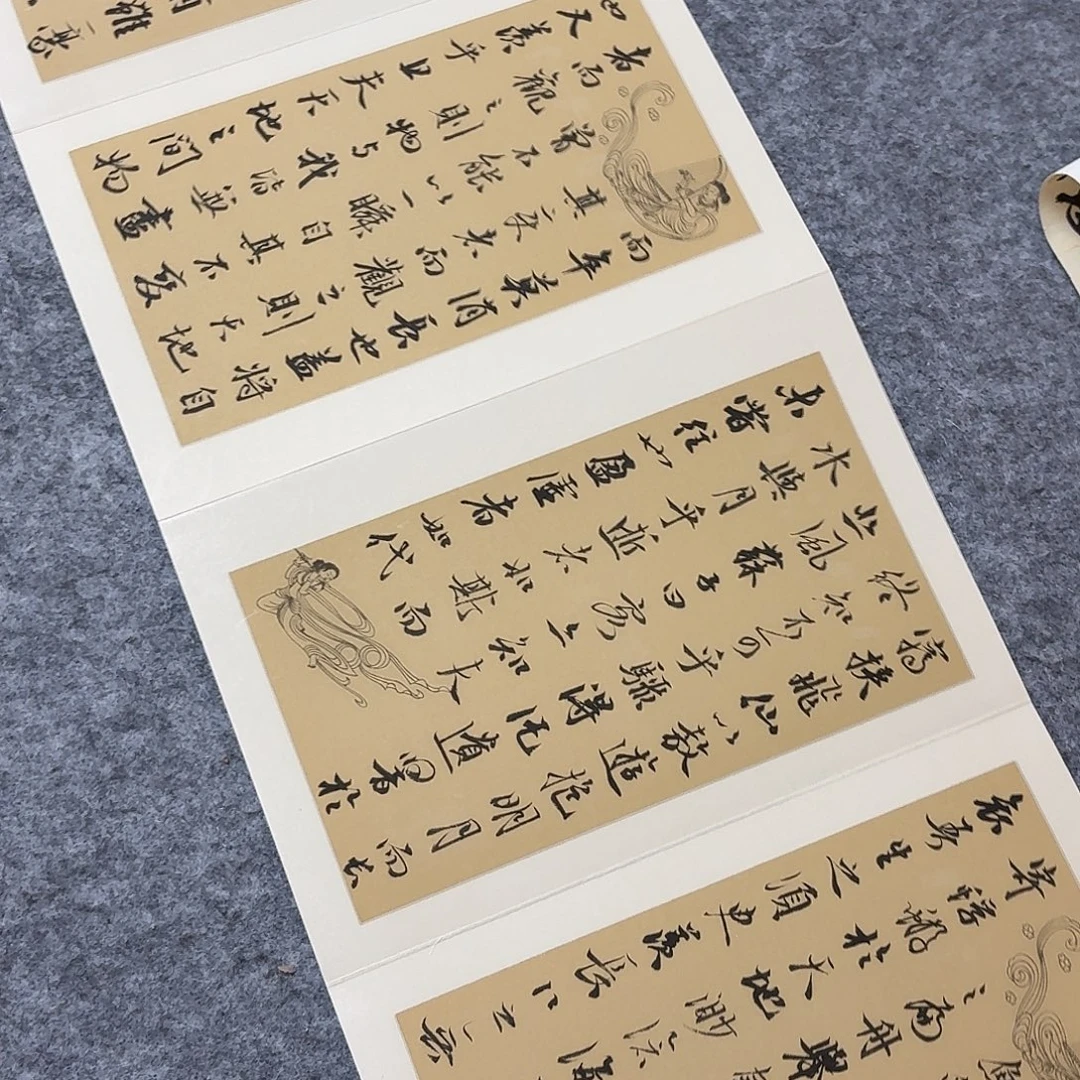 之扁舟舉
寄蜉蝣於天地渺滄海
哀吾生之須臾羨長江之無
窮挾飛仙以遨遊抱明月而長
終知不可乎驟得託遺響於
悲風蘇子曰客亦知夫
水與月乎逝者如斯而
未嘗往也盈虛者如代
而卒莫消長也蓋將自
其變者而觀之則天地
曾不能以一瞬自其不變
者而觀之則物與我皆無盡
也又羨乎且夫天地之間物
雖
毫